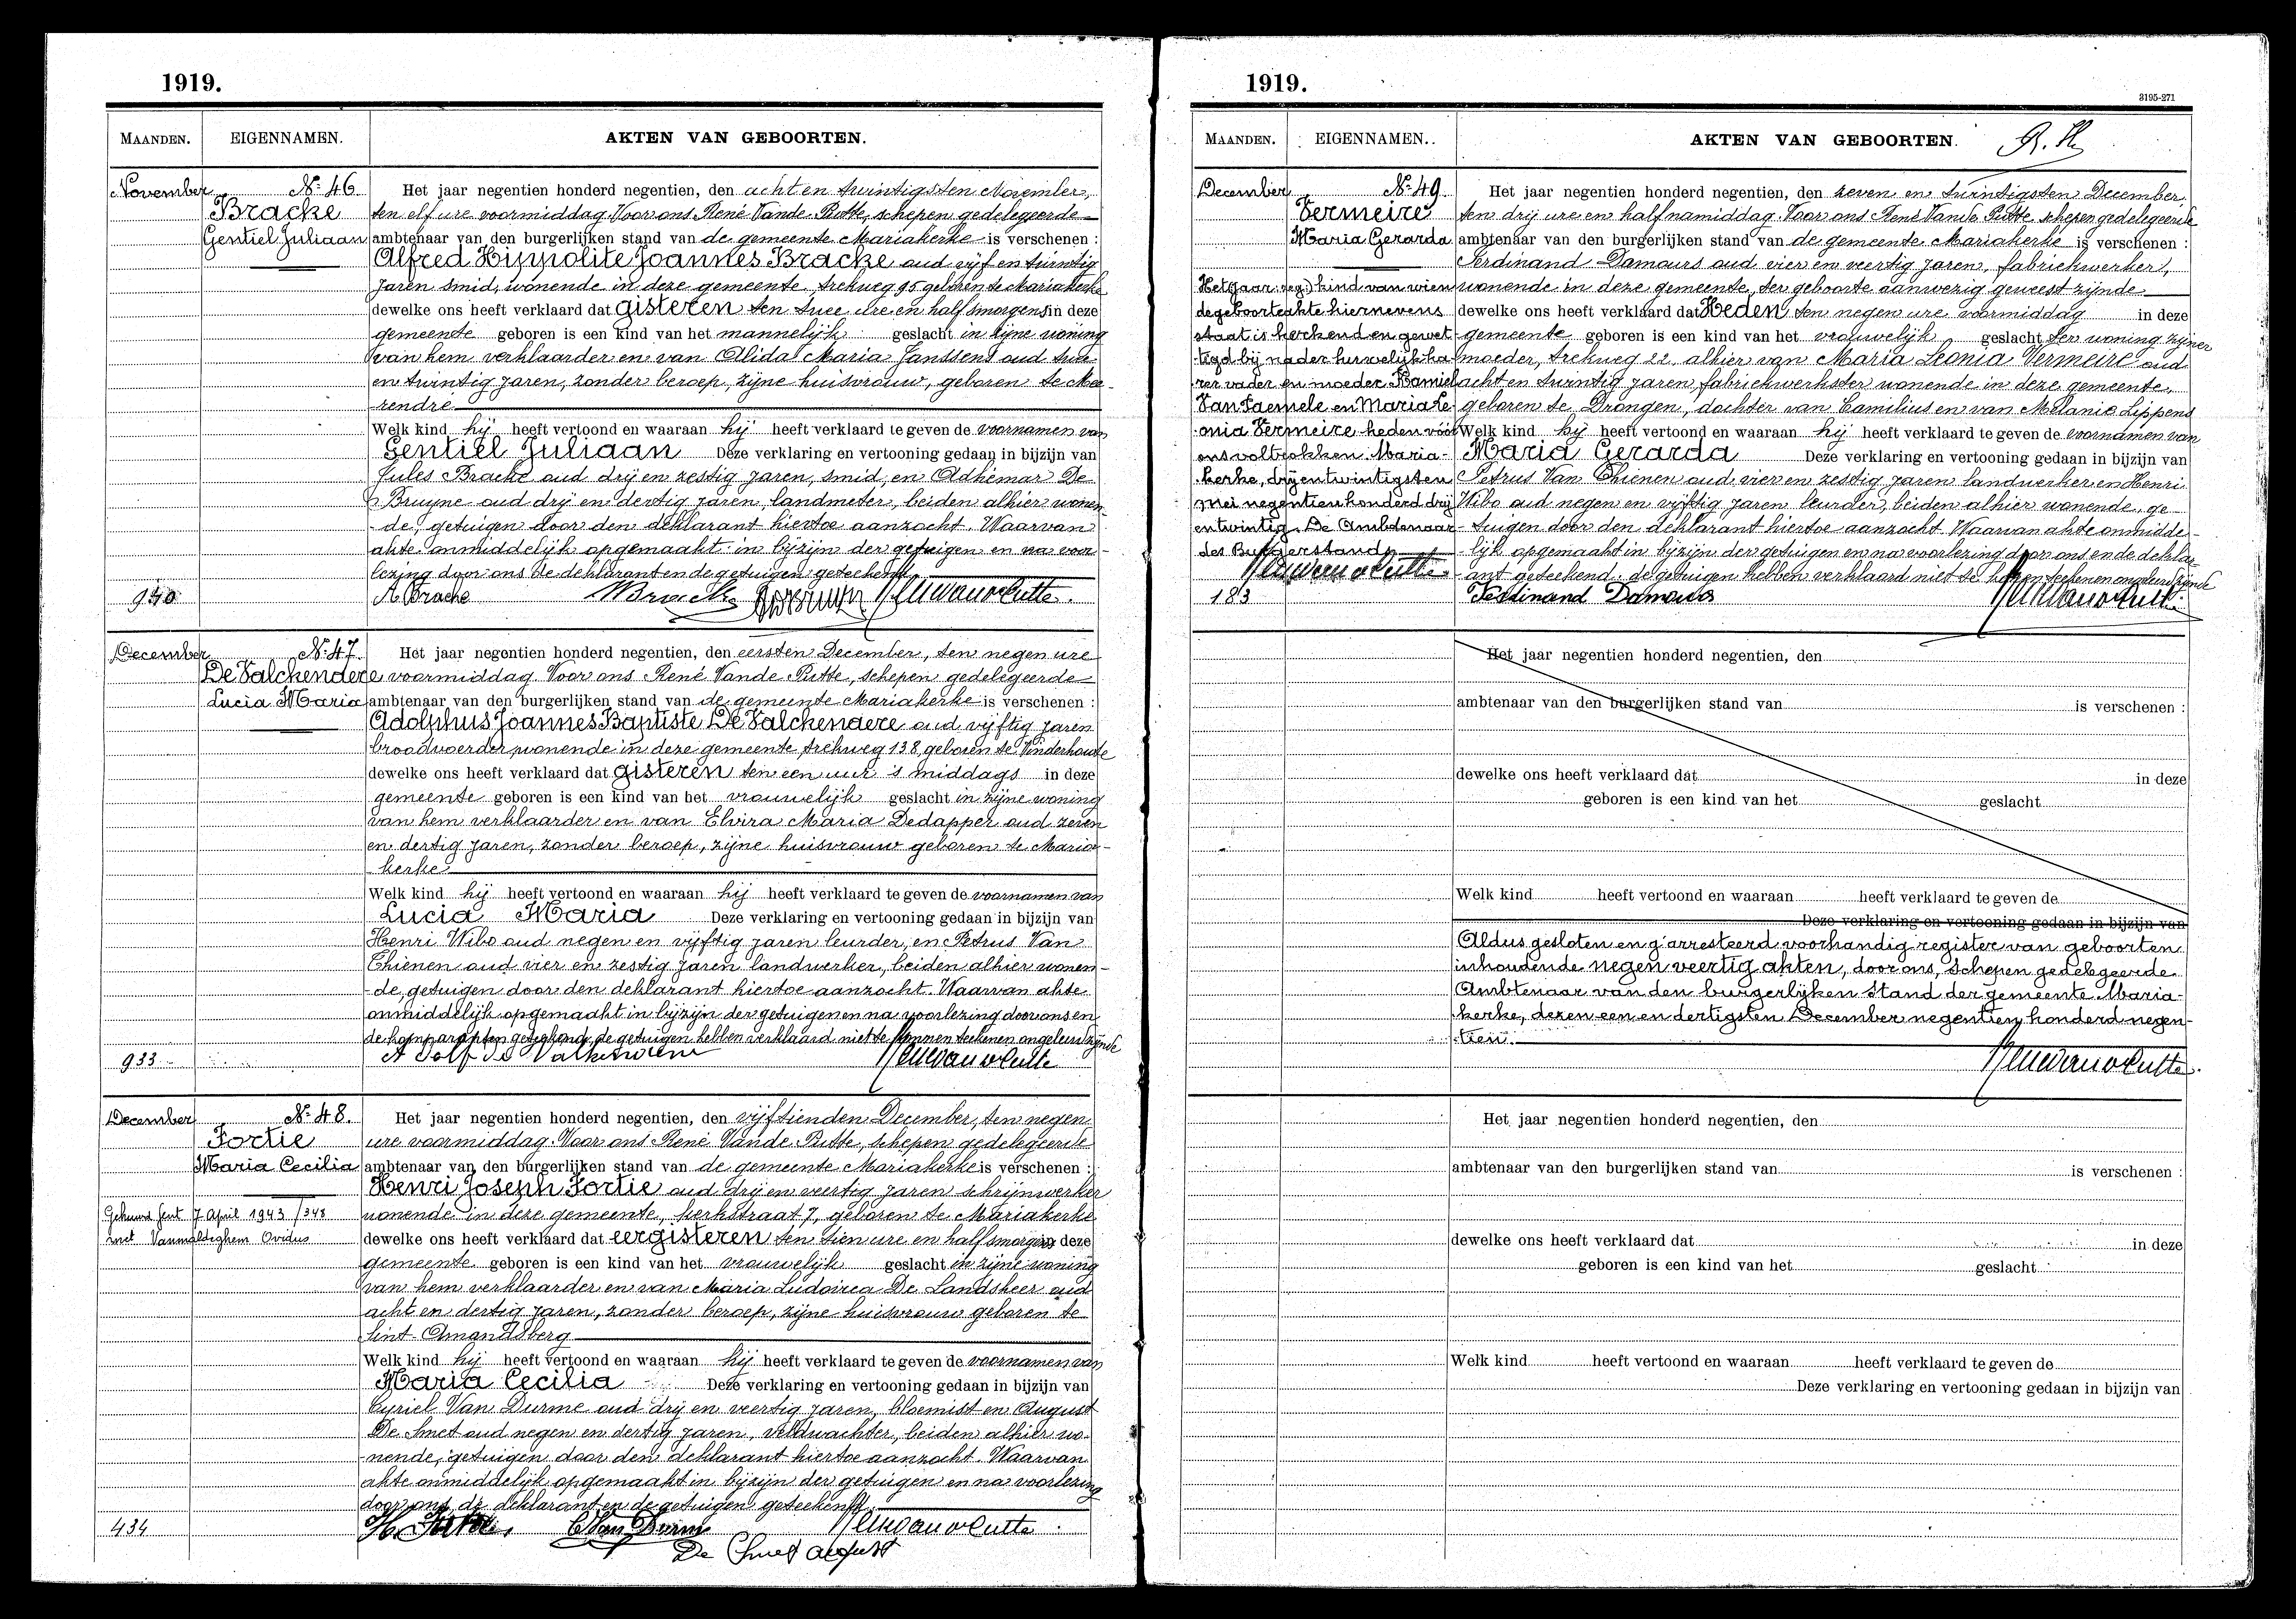 1919.
MAANDEN. EIGENNAMEN. AKTEN VAN GEBOORTEN.
November
Nr 46
Bracke
Gentiel Juliaan
Het jaar negentien honderd negentien, den acht en twintigsten November,
ten elf ure voormiddag Voor ons René Vande Putte, schepen gedelegeerde
ambtenaar van den burgerlijken stand van de gemeente Mariakerke is verschenen :
Alfred Hippolite Joannes Bracke oud vijf en twintig
jaren smid, wonende in deze gemeente, trekweg 95 geboren te Mariakerke
dewelke ons heeft verklaard dat gisteren ten twee ure en half smorgens in deze
gemeente geboren is een kind van het mannelijk geslacht in zijne woning
van hem verklaarder en van Alida Maria Janssens oud twee
en twintig jaren, zonder beroep, zijne huisvrouw, geboren te Mee-
rendré
Welk kind hij heeft vertoond en waaraan hij heeft verklaard te geven de voornamen van
Gentiel Juliaan Deze verklaring en vertooning gedaan in bijzijn van
Jules Bracke oud drij en zestig jaren, smid, en Adhemar De
Bruyne oud drij en dertig jaren, landmeter, beiden alhier wonen-
de, getuigen door den deklarant hiertoe aanzocht. Waarvan
akte onmiddelijk opgemaakt in bijzijn der getuigen en na voor-
lezing door ons de deklarant en de getuigen geteekend.
940
A Bracke
December
Nr 47
De Valckeneere
Lucia Maria
Het jaar negentien honderd negentien, den eersten December, ten negen ure
voormiddag Voor ons René Vande Putte, schepen gedelegeerde
ambtenaar van den burgerlijken stand van de gemeente Mariakerke is verschenen :
Adolphus Joannes Baptiste De Valckeneere oud vijftig jaren
broodvoerder wonende in deze gemeente, trekweg 138, geboren te Vinderhoute
dewelke ons heeft verklaard dat gisteren ten een uur 's middags in deze
gemeente geboren is een kind van het vrouwelijk geslacht in zijne woning
van hem verklaarder en van Elvira Maria Dedapper oud zeven
en dertig jaren, zonder beroep, zijne huisvrouw geboren te Maria-
kerke
Welk kind hij heeft vertoond en waaraan hij heeft verklaard te geven de voornamen van
Lucia Maria Deze verklaring en vertooning gedaan in bijzijn van
Henri Wibo oud negen en vijftig jaren leurder, en Petrus Van
Thienen oud vier en zestig jaren landwerker, beiden alhier wonen-
de, getuigen door den deklarant hiertoe aanzocht. Waarvan akte
onmiddelijk opgemaakt in bijzijn der getuigen en na voorlezing door ons en
de komparanten geteekend, de getuigen hebben verklaard niet te kunnen teekenen ongeleerd zijnde
933
December
Nr 48.
Fortie
Maria Cecilia
Gehuwd Gent 7 April 1943 /348
met Vanmaldeghem Ovidus
Het jaar negentien honderd negentien, den vijftienden December, ten negen
ure voormiddag. Voor ons René Vande Putte, schepen gedelegeerde
ambtenaar van den burgerlijken stand van de gemeente Mariakerke is verschenen :
Henri Joseph Fortie oud drij en veertig jaren schrijnwerker
wonende in deze gemeente, kerkstraat 7, geboren te Mariakerke
dewelke ons heeft verklaard dat eergisteren ten tien ure en half smorgens in deze
gemeente geboren is een kind van het vrouwelijk geslacht in zijne woning
van hem verklaarder en van Maria Ludovica De Landsheer oud
acht en dertig jaren, zonder beroep, zijne huisvrouw geboren te
Sint-Amandsberg
Welk kind hij heeft vertoond en waaraan hij heeft verklaard te geven de voornamen van
Maria Cecilia Deze verklaring en vertooning gedaan in bijzijn van
Cyriel Van Durme oud drij en veertig jaren, bloemist en August
De Smet oud negen en dertig jaren, veldwachter, beiden alhier wo-
nende, getuigen door den deklarant hiertoe aanzocht. Waarvan
akte onmiddelijk opgemaakt in bijzijn der getuigen en na voorlezing
door ons, de deklarant en de getuigen geteekend.
434
H. Fortie C Van Durme
De Smet august
1919.
3195-271
MAANDEN. EIGENNAMEN. AKTEN VAN GEBOORTEN.
December
Nr 49
Vermeire
Maria Gerarda
Het kind van wien
de geboorteakte hiernevens
staat is herkend en gewet-
tigd bij nader huwelijk ha-
rer vader en moeder Kamiel
Van Paemele en Maria Le-
onia Vermeire heden vóór
ons voltrokken. Maria-
kerke, drij en twintigsten
Mei negentien honderd drij
en twintig. De Ambtenaar
des Burgerstands
Het jaar negentien honderd negentien, den zeven en twintigsten December
ten drij ure en half namiddag. Voor ons René Vande Putte, schepen gedelegeerde
ambtenaar van den burgerlijken stand van de gemeente Mariakerke is verschenen :
Ferdinand Damours oud vier en veertig jaren, fabriekwerker,
wonende in deze gemeente, ter geboorte aanwezig geweest zijnde
dewelke ons heeft verklaard dat Heden ten negen ure voormiddag in deze
gemeente geboren is een kind van het vrouwelijk geslacht ter woning zijner
moeder, trekweg 22 alhier van Maria Leonia Vermeire oud
acht en twintig jaren fabriekwerkster wonende in deze gemeente,
geboren te Drongen, dochter van Camilius en van Melanie Lippens
Welk kind hij heeft vertoond en waaraan hij heeft verklaard te geven de voornamen van
Maria Gerarda Deze verklaring en vertooning gedaan in bijzijn van
Petrus Van Thienen oud vier en zestig jaren landwerker en Henri
Wibo oud negen en vijftig jaren leurder, beiden alhier wonende, ge-
tuigen door den deklarant hiertoe aanzocht Waarvan akte onmidde-
lijk opgemaakt in bijzijn der getuigen en na voorlezing door ons en de dekla-
rant geteekend. de getuigen hebben verklaard niet te kunnen teekenen ongeleerd zijnde
183
Ferdinand Damours
Het jaar negentien honderd negentien, den
ambtenaar van den burgerlijken stand van is verschenen :
dewelke ons heeft verklaard dat in deze
geboren is een kind van het geslacht
Welk kind heeft vertoond en waaraan heeft verklaard te geven de
Deze verklaring en vertooning gedaan in bijzijn van
Aldus gesloten en g'arresteerd voorhandig register van geboorten
inhoudende negen veertig akten, door ons, Schepen gedelegeerde
Ambtenaar van den burgerlijken Stand der gemeente Maria-
kerke, dezen een en dertigsten December negentien honderd negen-
tien.
Het jaar negentien honderd negentien, den
ambtenaar van den burgerlijken stand van is verschenen :
dewelke ons heeft verklaard dat in deze
geboren is een kind van het geslacht
Welk kind heeft vertoond en waaraan heeft verklaard te geven de
Deze verklaring en vertooning gedaan in bijzijn van